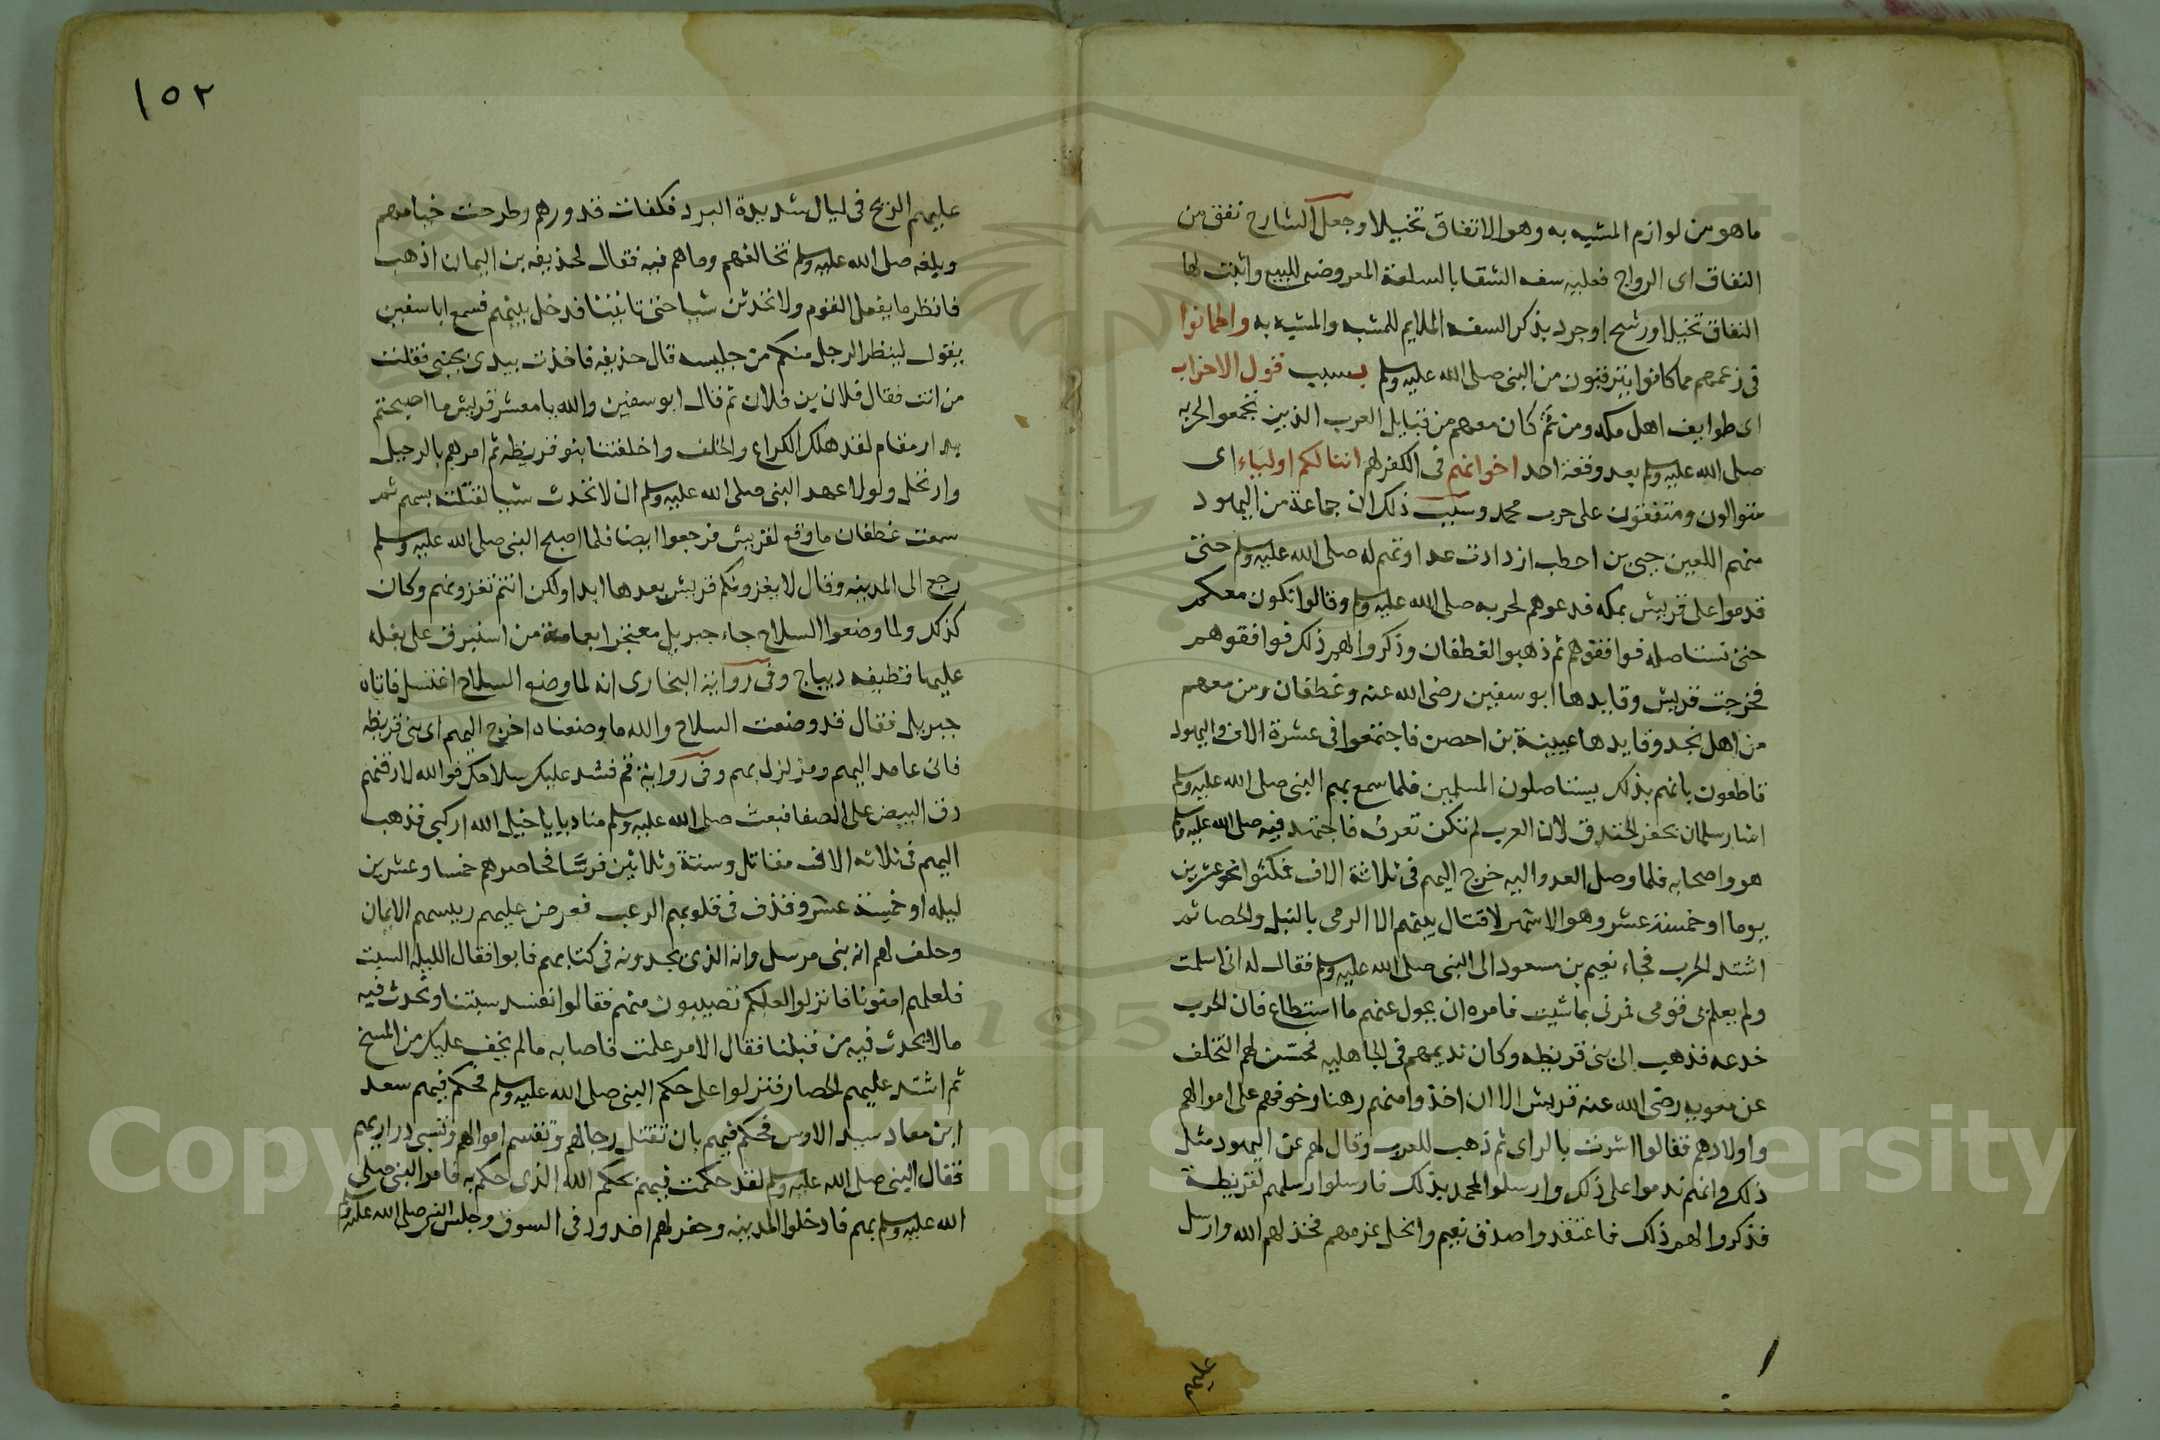 ما هو من لوازم المشبه به وهو الانفاق تخييلا وجعل الشارح نفق من
النفاق اى الرواج فعليه سفه الشقا بالسلعة المعروضه للبيع واثبت لها
النفاق تخيلا ورشح او جرد بذكر السفه الملايم للمشبه والمشبه به واطمانوا
فى زعمهم مما كانوا يترقبون من النبى صلى الله عليه وسلم بسبب قول الاحزاب
اى طوايف اهل مكه ومن ثم كان معهم من قبايل العرب الذين تجمعوا لحربه
صلى الله عليه وسلم بعد وقعة احد اخوانهم فى الكفر لهم اننا لكم اولياء اى
متوالون ومتفقون على حرب محمد وسبب ذلك ان جماعة من اليهود
منهم اللعين حيى بن احطب ازدادت عداوتهم له صلى الله عليه وسلم حتى
قدموا على قريش بمكه فدعوهم لحربه صلى الله عليه وسلم وقالوا نكون معكم
حتى نستاصله فوافقوهم ثم ذهبوا لغطفان وذكروا لهم ذلك فوافقوهم
فخرجت قريش وقايدها ابو سفين رضى الله عنه وغطفان ومن معهم
من اهل نجد وقايدها عيينة بن احصن فاجتمعوا فى عشرة الاف واليهود
قاطعون بانهم بذلك يستاصلون المسلمين فلما سمع بهم النبى صلى الله عليه وسلم
اشار سلمان بحفر الخندق لان العرب لم تكن تعرف فاجتهد فيه صلى الله عليه وسلم
هو واصحابه فلما وصل العدو اليه خرج اليهم فى ثلاثة الاف فمكثوا نحو عشرين
يوما او خمسة عشر وهو الاشهر لا قتال بينهم الا الرمى بالنبل والحصا ثم
اشتد الحرب فجاء نعيم بن مسعود الى النبى صلى الله عليه وسلم فقال له انى اسلمت
ولم يعلم بى قومى فمرنى بما شيت فامره ان يحول عنهم ما استطاع فان الحرب
خدعه فذهب الى بنى قريظه وكان نديمهم فى الجاهليه فحسن لهم التخلف
عن معويه رضى الله عنه قريش الا ان اخذوا منهم رهنا وخوفهم على اموالهم
واولادهم فقالوا اشرت بالراى ثم ذهب للعرب وقال لهم عن اليهود مثل
ذلك وانهم ندموا على ذلك وارسلوا لمحمد بذلك فارسلوا رسلهم لقريظة
فذكروا لهم ذلك فاعتقدوا صدق نعيم وانحل عزمهم فخذلهم الله وارسل
عليهم
١٥٢
عليهم الريح فى ليال شديدة البرد فكفات قدورهم وطرحت خيامهم
وبلغه صلى الله عليه وسلم تخالفهم وما هم فيه فقال لحذيفه بن اليمان اذهب
فانظر ما يفعل القوم ولا تحدثن شيا حتى تاتينا فدخل بينهم فسمع ابا سفين
يقول لينظر الرجل منكم من جليسه قال حذيفه فاخذت بيدى بجنبى فقلت
من انت فقال فلان بن فلان ثم قال ابو سفين والله يا معشر قريش ما اصبحتم
بدار مقام لقد هلك الكراع والخلف واخلفتنا بنو قريظه ثم امرهم بالرحيل
وارتحل ولولا عهد النبى صلى الله عليه وسلم ان لا تحدث شيا لقتلته بسهم ثم
سمعت غطفان ما وقع لقريش فرجعوا ايضا فلما اصبح النبى صلى الله عليه وسلم
رجع الى المدينه وقال لا يغزونكم قريش بعدها ابدا ولكن انتم تغزونهم وكان
كذلك ولما وضعوا السلاح جاء جبريل معتجرا بعمامة من استبرق على بغله
عليها قطيفه ديباج وفى رواية البخارى انه لما وضع السلاح اغتسل فاتاه
جبريل فقال قد وضعت السلاح والله ما وضعناه اخرج اليهم اى بنى قريظه
فانى عامد اليهم ومزلزل بهم وفى رواية قم فشد عليك سلاحك فوالله لادقنهم
دق البيض على الصفا فبعث صلى الله عليه وسلم مناديا يا خيل الله اركبى فذهب
اليهم فى ثلاثه الاف مقاتل وستة وثلاثين فرسا فحاصرهم خمسا وعشرين
ليله او خمسة عشر وقذف فى قلوبهم الرعب فعرض عليهم رييسهم الايمان
وحلف لهم انه نبى مرسل وانه الذى يجدونه فى كتابهم فابوا فقال الليله السبت
فلعلهم امنونا فانزلوا لعلكم تصيبون منهم فقالوا نفسد سبتنا ونحدث فيه
ما لا يحدث فيه من قبلنا فقال الا من علمت فاصابه ما لم يخف عليك من المسخ
ثم اشتد عليهم الحصار فنزلوا على حكم النبى صلى الله عليه وسلم فحكم فيهم سعد
ابن معاد سيد الاوس فحكم فيهم بان تقتل رجالهم وتقسم اموالهم وتسبى دراريهم
فقال النبى صلى الله عليه وسلم لقد حكمت فيهم بحكم الله الذى حكم به فامر النبى صلى
الله عليه وسلم بهم فادخلوا المدينه وحفر لهم اخدود فى السوق وجلس النبى صلى الله عليه وسلم
Copyright © King Saud University
195